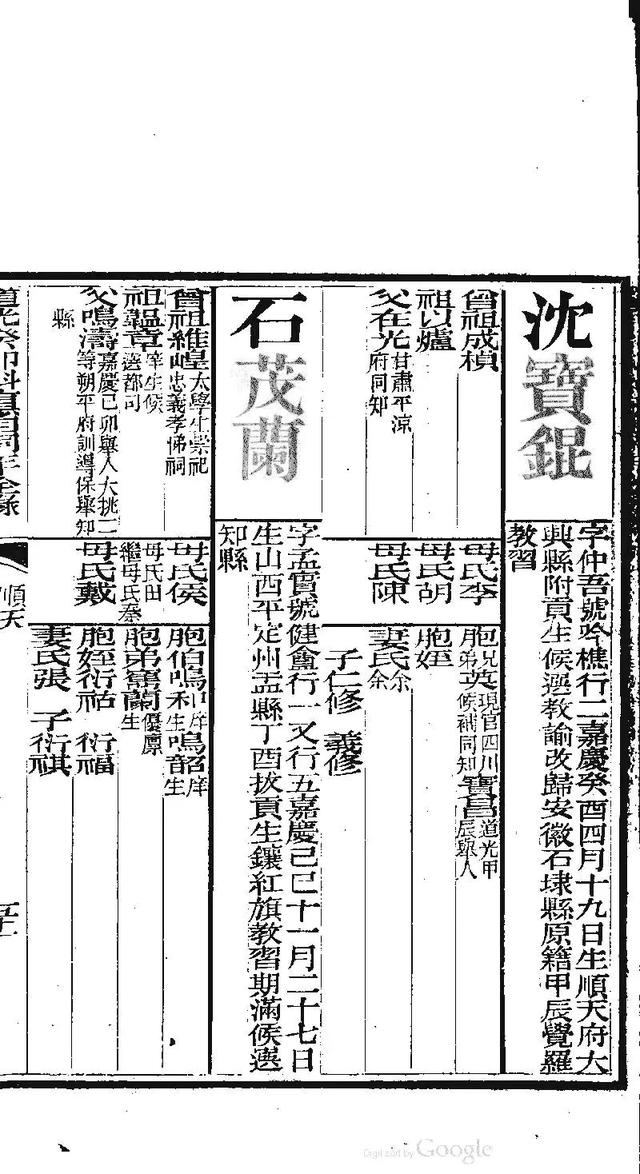 沈寶錕
字仲吾號吟樵行二嘉慶癸酉四月十九日生順天府大
興縣附貢生候選教諭改歸安徽石埭縣原籍甲辰覺羅
教習
曾祖成楨
母氏李
胞兄英現官四川候補同知
弟寶昌道光甲辰舉人
祖以爐
母氏胡
胞姪
父在光甘肅平涼府同知
母氏陳
妻氏余
子仁修 義修
石茂蘭
字孟實號健龕行一又行五嘉慶己巳十一月二十七日
生山西平定州盂縣丁酉拔貢生鑲紅旗教習期滿候選
知縣
曾祖維㟋太學生崇祀忠義孝悌祠
母氏侯
胞伯鳴和庠生鳴韶庠生
祖韞章庠生候選都司
母氏田
繼母氏秦
胞弟蘭優廩生
父鳴濤嘉慶己卯舉人大挑二等朔平府訓導保舉知
縣
母氏戴
胞姪衍祜 衍福
妻氏張 子衍祺
道光癸卯科直省同年全錄
順天